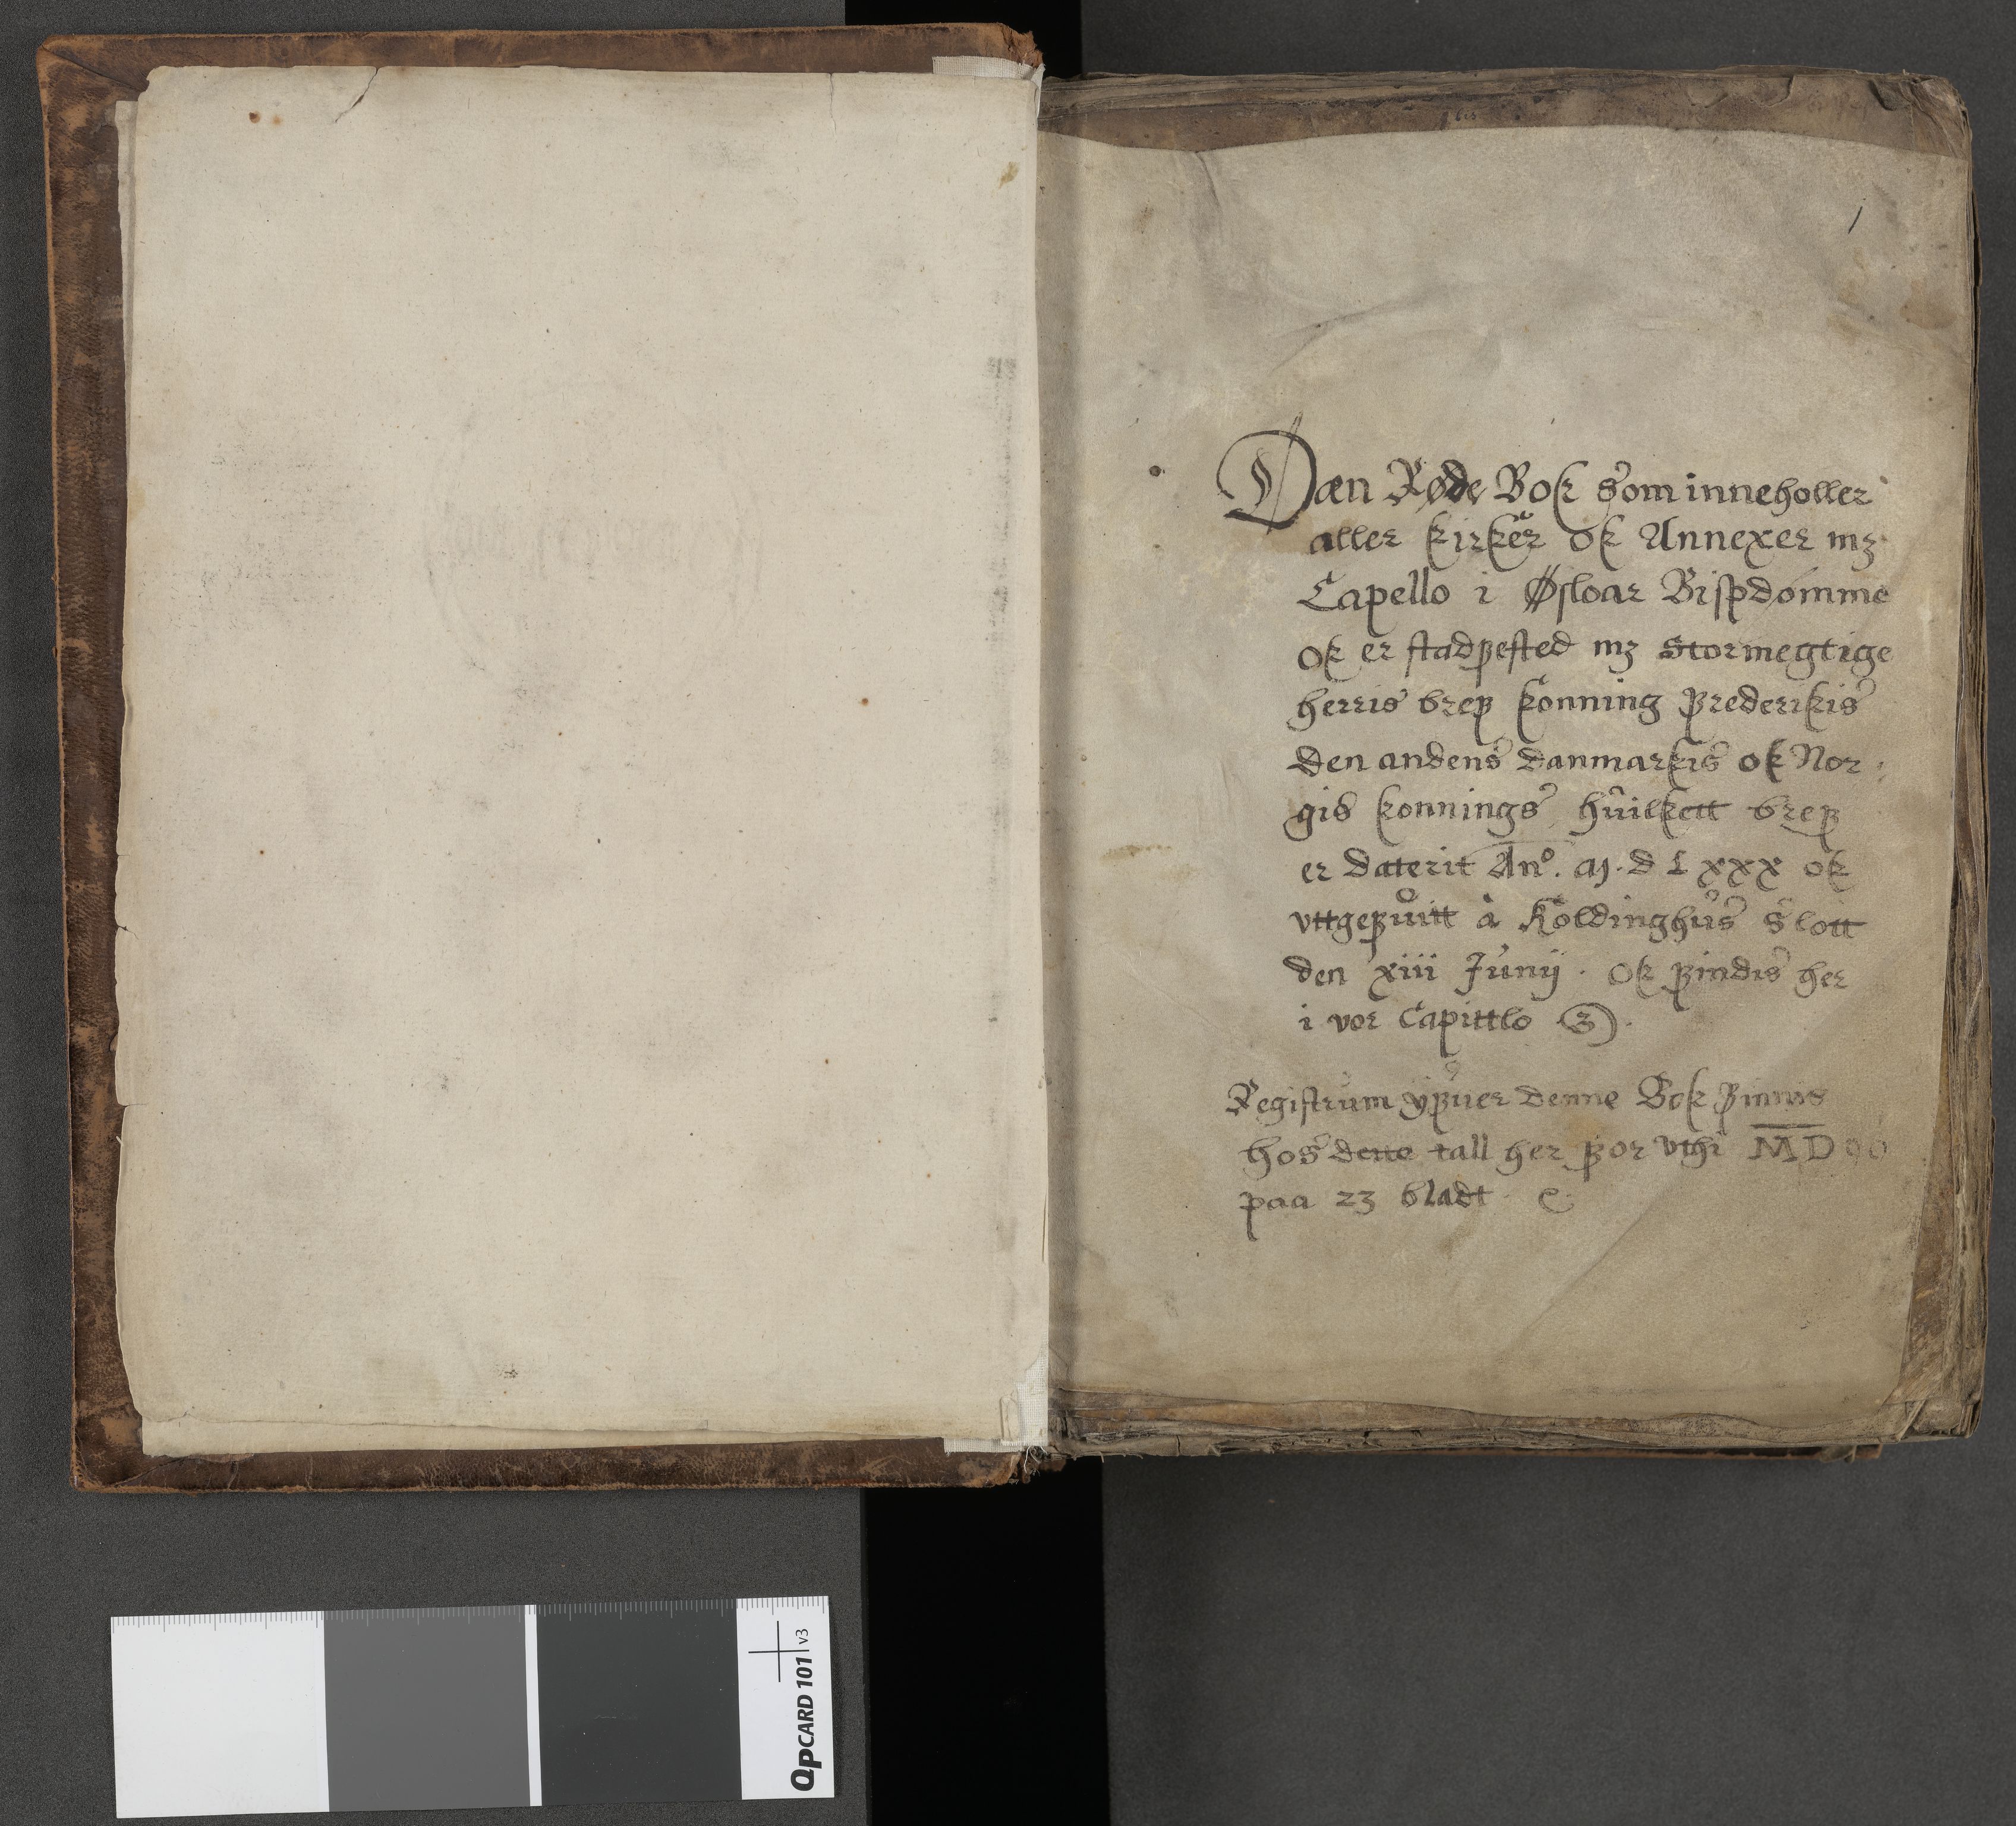 1
Dæn Røde Bok som inneholler
aller kirker ok Annexer mꝫ
Capello i Øsloar Bispdomme
ok er stadfested mꝫ Stormegtige
herris bref konning frederikis
den andens danmarkis ok Nor
gis konnings huilkett bref
er daterit Anº. M.d Lxxx ok
vttgefuitt à Koldinghus Slott
den xiii Junij . Ok findis her
i vor Capittlo
Registrum yfuer denne Bok finnis
hos dette tall her for vthi MD90
paa 23 bladt
QPCARD 101 v3